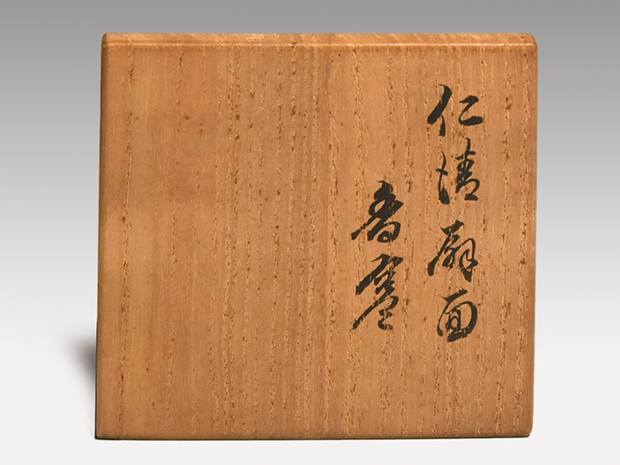 仁清扇面
香炉